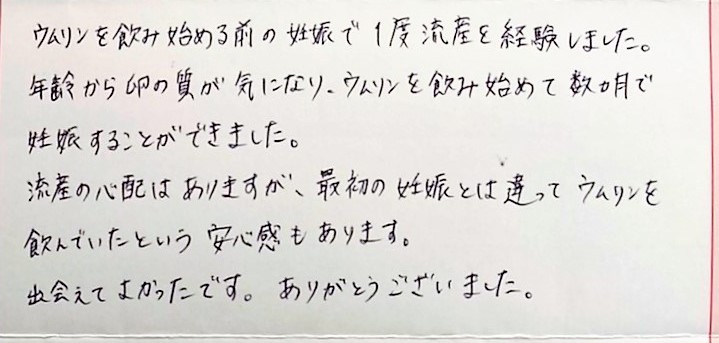 ウムリンを飲み始める前の妊娠で1度流産を経験しました。
年齢から卵の質が気になり、ウムリンを飲み始めて数カ月で
妊娠することができました。
流産の心配はありますが、最初の妊娠とは違ってウムリンを
飲んでいたという安心感もあります。
出会えてよかったです。ありがとうございました。